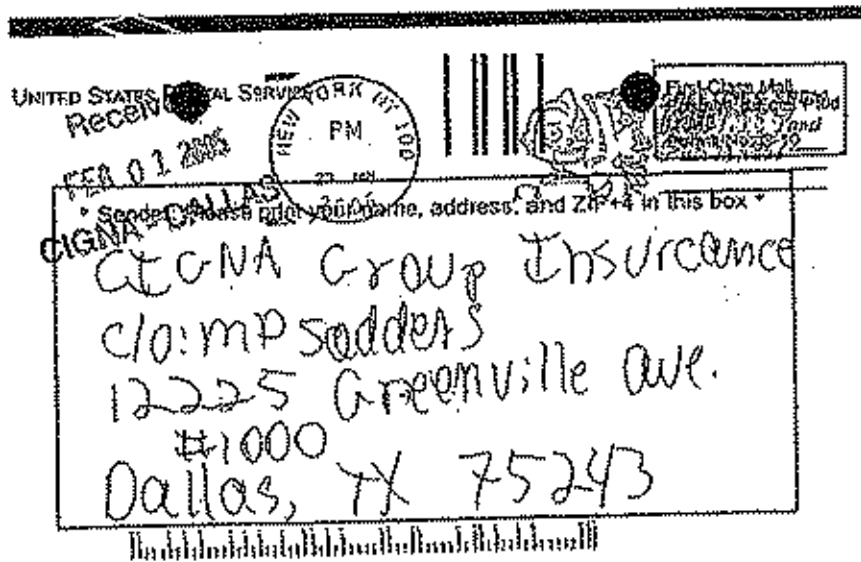 UNITED STATES POSTAL SERVICE
Received
FEB 01 2006
CIGNA - DALLAS
NEW YORK NY 100
PM
2006
First-Class Mail
* Sender: Please print your name, address, and ZIP+4 in this box *
CIGNA Group Insurcance
c/o: MP sadders
12225 Greenville ave.
#1000
Dallas, TX 75243